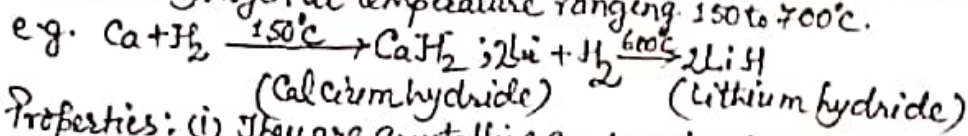 temperature ranging 150 to 700°C.
e.g. Ca + H₂ —150°C→ CaH₂ ; 2Li + H₂ —600°C→ 2LiH
(Calcium hydride) (Lithium hydride)
Properties: (i) They are crystalline